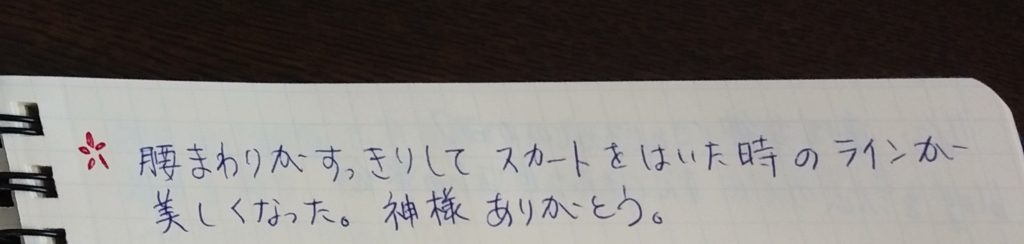 腰まわりがすっきりして スカートをはいた時のラインが
美しくなった。神様ありがとう。